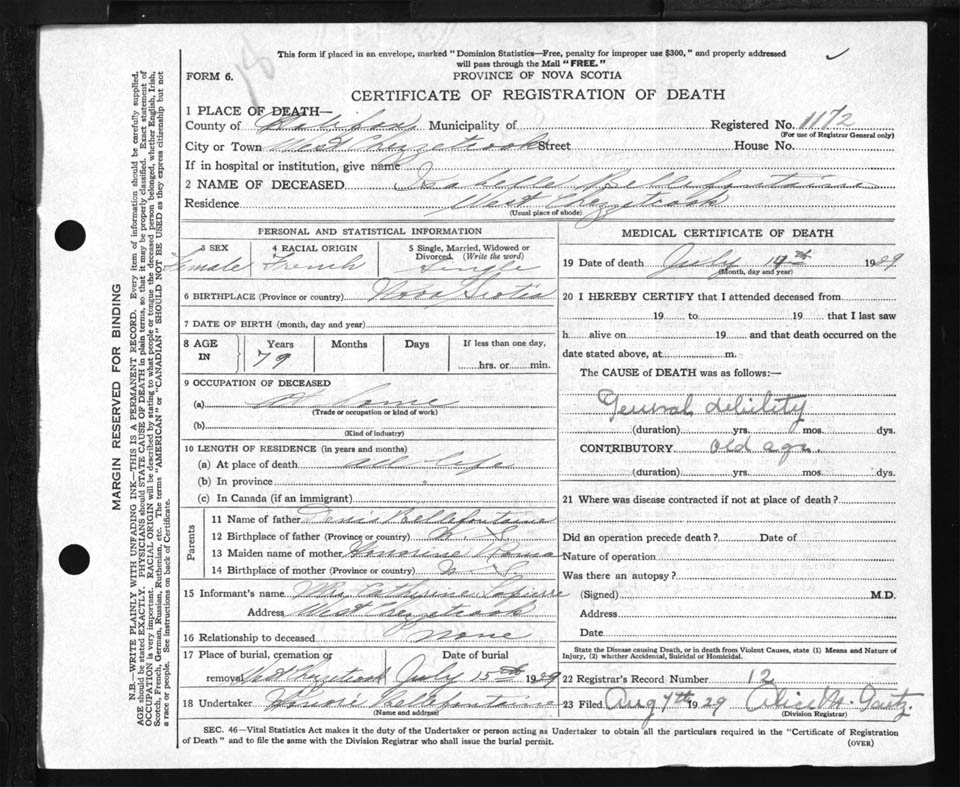 This form if placed in an envelope, marked "Dominion Statistics—Free, penalty for improper use $300," and properly addressed
will pass through the Mail "FREE."
FORM 6.
PROVINCE OF NOVA SCOTIA
CERTIFICATE OF REGISTRATION OF DEATH
1 PLACE OF DEATH—
County of Halifax Municipality of Registered No. 1172
(For use of Registrar General only)
City or Town West Chezzetcook Street House No.
If in hospital or institution, give name
2 NAME OF DECEASED Isabelle Bellefontaine
Residence West Chezzetcook
(Usual place of abode)
PERSONAL AND STATISTICAL INFORMATION
3 SEX 4 RACIAL ORIGIN 5 Single, Married, Widowed or
Divorced. (Write the word)
Female French Single
6 BIRTHPLACE (Province or country) Nova Scotia
7 DATE OF BIRTH (month, day and year)
8 AGE IN Years Months Days If less than one day,
79 hrs. or min.
9 OCCUPATION OF DECEASED
(a) At home
(Trade or occupation or kind of work)
(b)
(Kind of industry)
10 LENGTH OF RESIDENCE (in years and months)
(a) At place of death all life
(b) In province "
(c) In Canada (if an immigrant)
Parents
11 Name of father Denis Bellefontaine
12 Birthplace of father (Province or country) N. S.
13 Maiden name of mother Honorine Roma
14 Birthplace of mother (Province or country) N. S.
15 Informant's name Mrs. Catherine Lapierre
Address West Chezzetcook
16 Relationship to deceased none
17 Place of burial, cremation or Date of burial
removal West Chezzetcook July 15th 1929
18 Undertaker Honoré Bellefontaine
(Name and address)
MEDICAL CERTIFICATE OF DEATH
19 Date of death July 14th 1929
(Month, day and year)
20 I HEREBY CERTIFY that I attended deceased from
19 to 19 that I last saw
h alive on 19 and that death occurred on the
date stated above, at m.
The CAUSE of DEATH was as follows:—
General debility
(duration) yrs. mos. dys.
CONTRIBUTORY old age.
(duration) yrs. mos. dys.
21 Where was disease contracted if not at place of death?
Did an operation precede death? Date of
Nature of operation
Was there an autopsy?
(Signed) M.D.
Address
Date
State the Disease causing Death, or in death from Violent Causes, state (1) Means and Nature of
Injury, (2) whether Accidental, Suicidal or Homicidal.
22 Registrar's Record Number 12
23 Filed Aug 7th 1929 Alice M. Gaetz.
(Division Registrar)
SEC. 46—Vital Statistics Act makes it the duty of the Undertaker or person acting as Undertaker to obtain all the particulars required in the "Certificate of Registration
of Death" and to file the same with the Division Registrar who shall issue the burial permit.
(OVER)
MARGIN RESERVED FOR BINDING
N.B.—WRITE PLAINLY WITH UNFADING INK—THIS IS A PERMANENT RECORD. Every item of information should be carefully supplied.
AGE should be stated EXACTLY. PHYSICIANS should STATE CAUSE OF DEATH in plain terms, so that it may be properly classified. Exact statement of
OCCUPATION is very important. RACIAL ORIGIN will be described by stating to what people or tongue the deceased person belonged, whether English, Irish,
Scotch, French, German, Russian, Ruthenian, etc. The terms "AMERICAN" or "CANADIAN" SHOULD NOT BE USED as they express citizenship but not
a race or people. See instructions on back of Certificate.